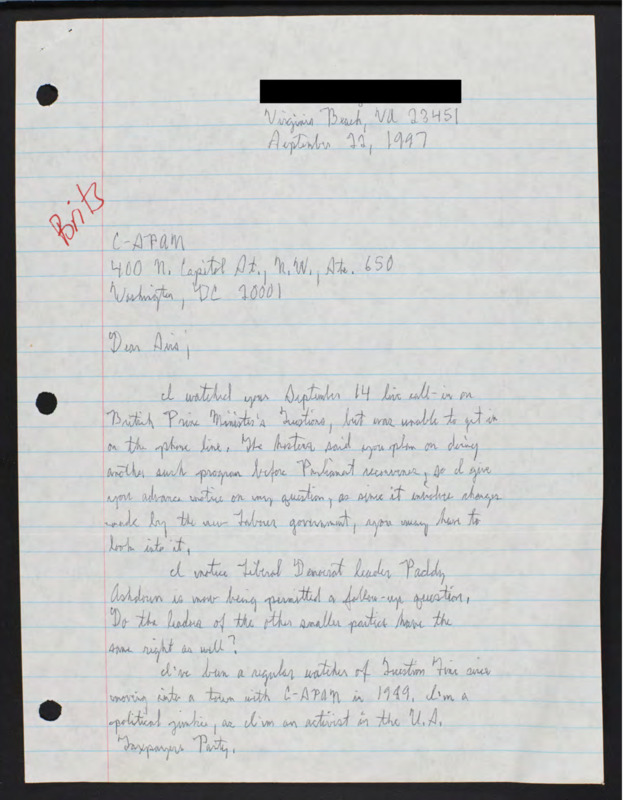 Virginia Beach, Va 23451
September 22, 1997
Brits
C-SPAN
400 N. Capitol St., N.W., Ste. 650
Washington, DC 20001
Dear Sirs;
I watched your September 14 live call-in on
British Prime Minister's Questions, but was unable to get in
on the phone line. The hostess said you plan on doing
another such program before Parliament reconvenes, so I give
you advance notice on my question, as since it involves changes
made by the new Labour government, you may have to
look into it.
I notice Liberal Democrat leader Paddy
Ashdown is now being permitted a follow-up question.
Do the leaders of the other smaller parties have the
same right as well?
I've been a regular watcher of Question Time since
moving into a town with C-SPAN in 1989. I'm a
political junkie, as I'm an activist in the U.S.
Taxpayers Party.